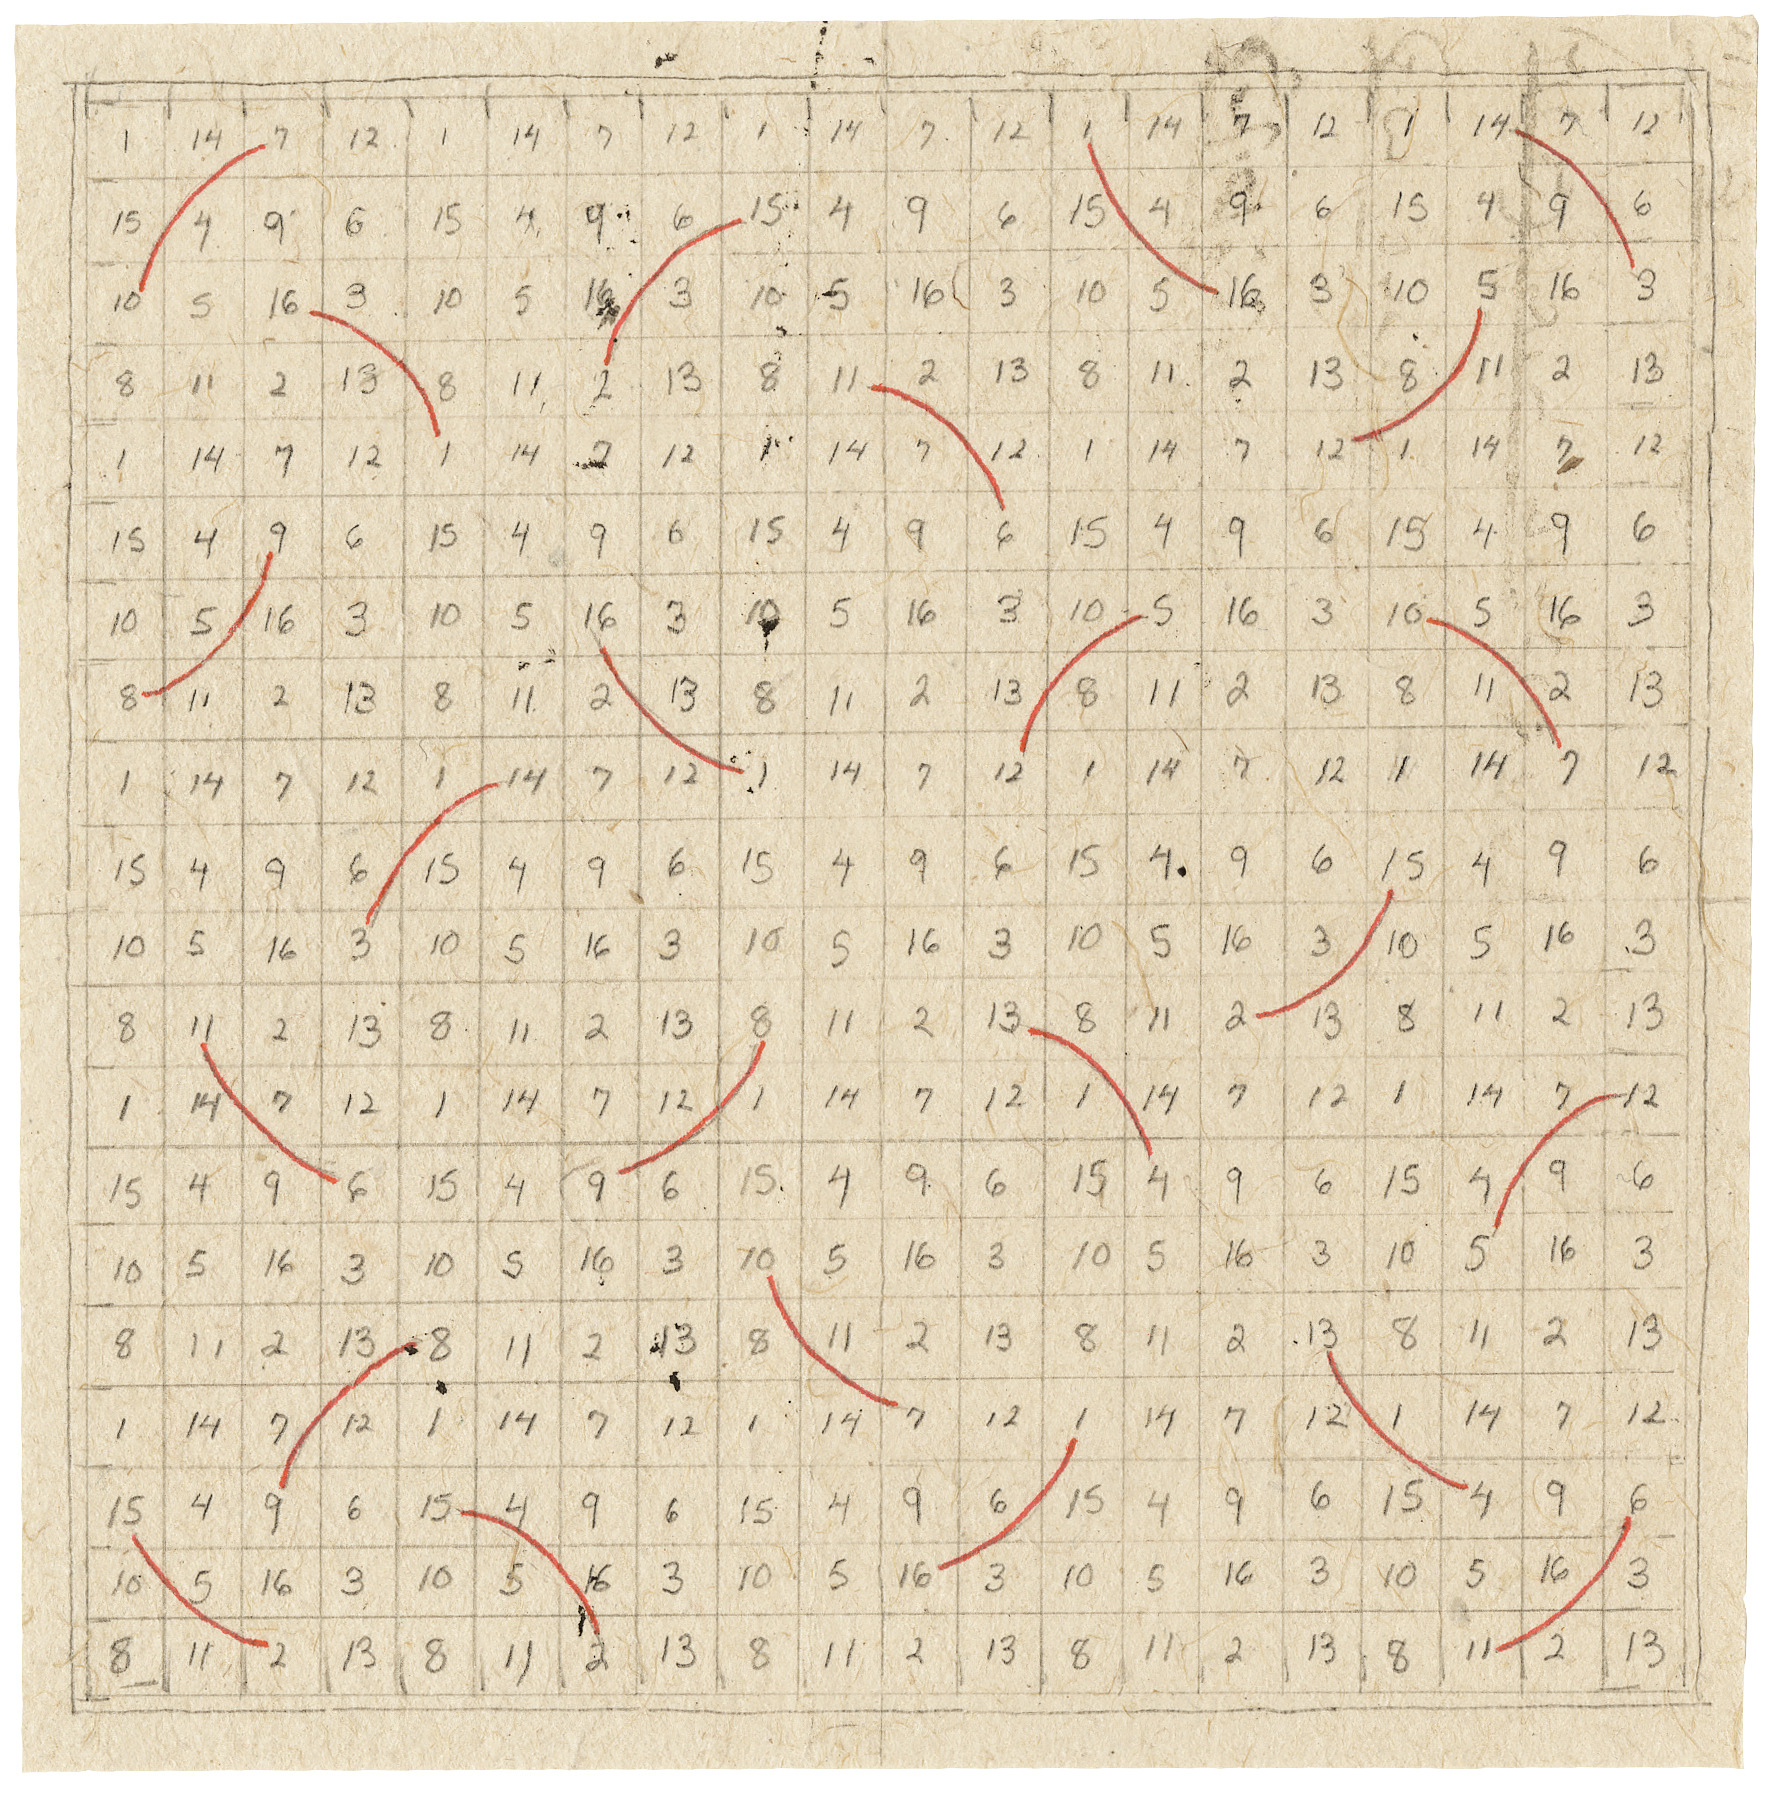 1 14 7 12 1 14 7 12 1 14 7 12 1 14 7 12 1 14 7 12
15 4 9 6 15 4 9 6 15 4 9 6 15 4 9 6 15 4 9 6
10 5 16 3 10 5 16 3 10 5 16 3 10 5 16 3 10 5 16 3
8 11 2 13 8 11 2 13 8 11 2 13 8 11 2 13 8 11 2 13
1 14 7 12 1 14 7 12 1 14 7 12 1 14 7 12 1 14 7 12
15 4 9 6 15 4 9 6 15 4 9 6 15 4 9 6 15 4 9 6
10 5 16 3 10 5 16 3 10 5 16 3 10 5 16 3 10 5 16 3
8 11 2 13 8 11 2 13 8 11 2 13 8 11 2 13 8 11 2 13
1 14 7 12 1 14 7 12 1 14 7 12 1 14 7 12 1 14 7 12
15 4 9 6 15 4 9 6 15 4 9 6 15 4 9 6 15 4 9 6
10 5 16 3 10 5 16 3 10 5 16 3 10 5 16 3 10 5 16 3
8 11 2 13 8 11 2 13 8 11 2 13 8 11 2 13 8 11 2 13
1 14 7 12 1 14 7 12 1 14 7 12 1 14 7 12 1 14 7 12
15 4 9 6 15 4 9 6 15 4 9 6 15 4 9 6 15 4 9 6
10 5 16 3 10 5 16 3 10 5 16 3 10 5 16 3 10 5 16 3
8 11 2 13 8 11 2 13 8 11 2 13 8 11 2 13 8 11 2 13
1 14 7 12 1 14 7 12 1 14 7 12 1 14 7 12 1 14 7 12
15 4 9 6 15 4 9 6 15 4 9 6 15 4 9 6 15 4 9 6
10 5 16 3 10 5 16 3 10 5 16 3 10 5 16 3 10 5 16 3
8 11 2 13 8 11 2 13 8 11 2 13 8 11 2 13 8 11 2 13